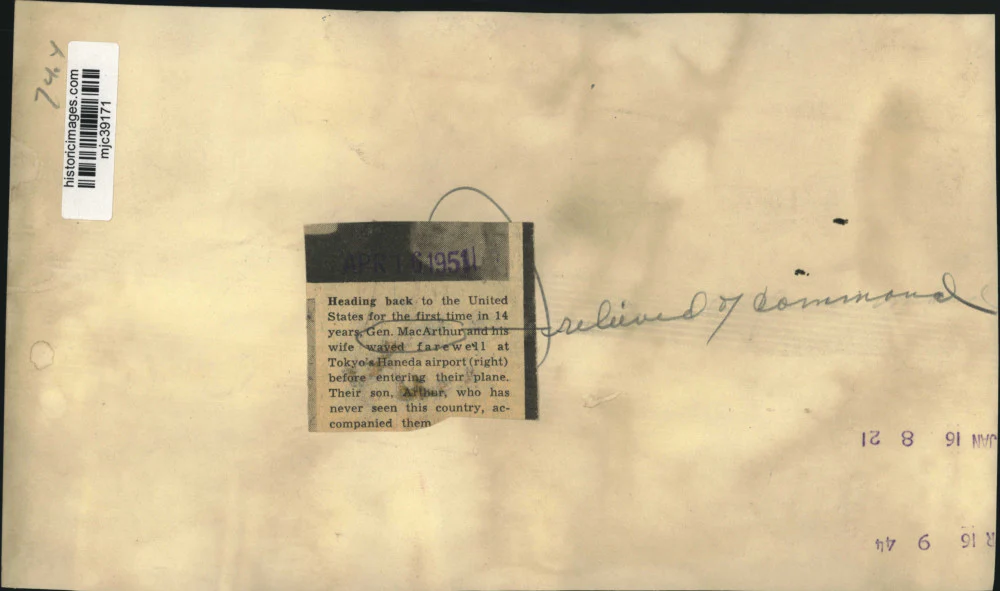 74.4
historicimages.com
mjc39171
APR 16 1951
Heading back to the United
States for the first time in 14
years, Gen. MacArthur and his
wife waved farewell at
Tokyo's Haneda airport (right)
before entering their plane.
Their son, Arthur, who has
never seen this country, ac-
companied them
relieved of command
JAN 16 8 21
R 16 9 44